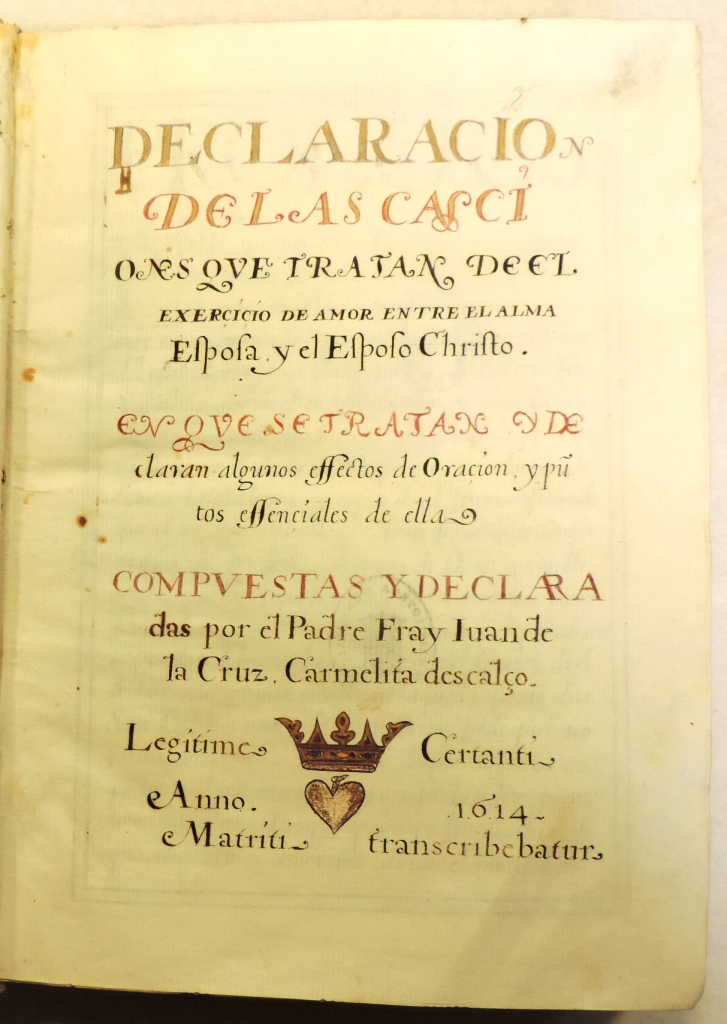 DECLARACION
DE LAS CANCI
ONES QVE TRATAN DE EL
EXERCICIO DE AMOR ENTRE EL ALMA
Eſpoſa, y el Eſpoſo Chriſto.
EN QVE SE TRATAN Y DE
claran algunos effectos de Oracion, y pũ
tos eſſenciales de ella
COMPVESTAS Y DECLARA
das por el Padre Fray Iuan de
la Cruz. Carmelita descalço.
Legitime Certanti
Anno. .1614
Matriti transcribebatur